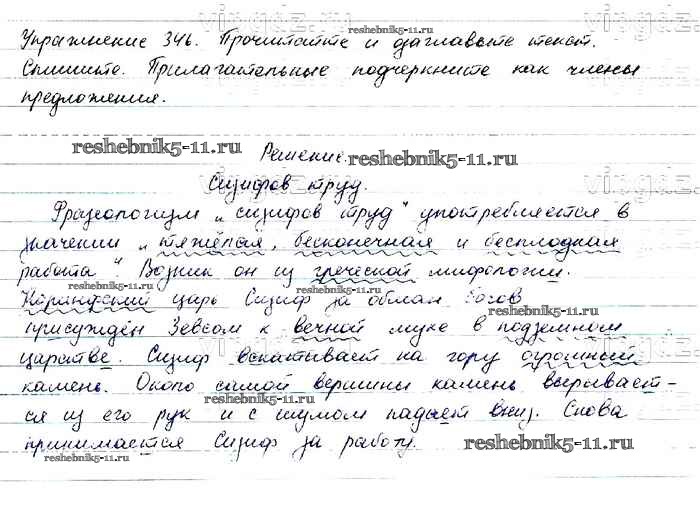 Упражнение 346. Прочитайте и озаглавьте текст.
Спишите. Прилагательные подчеркните как члены
предложения.
reshebnik5-11.ru
Решение.
Сизифов труд.
Фразеологизм „сизифов труд" употребляется в
значении „тяжёлая, бесконечная и бесплодная
работа". Возник он из греческой мифологии.
Коринфский царь Сизиф за обман богов
присуждён Зевсом к вечной муке в подземном
царстве. Сизиф вскатывает на гору огромный
камень. Около самой вершины камень вырывает-
ся из его рук и с шумом падает вниз. Снова
принимается Сизиф за работу.